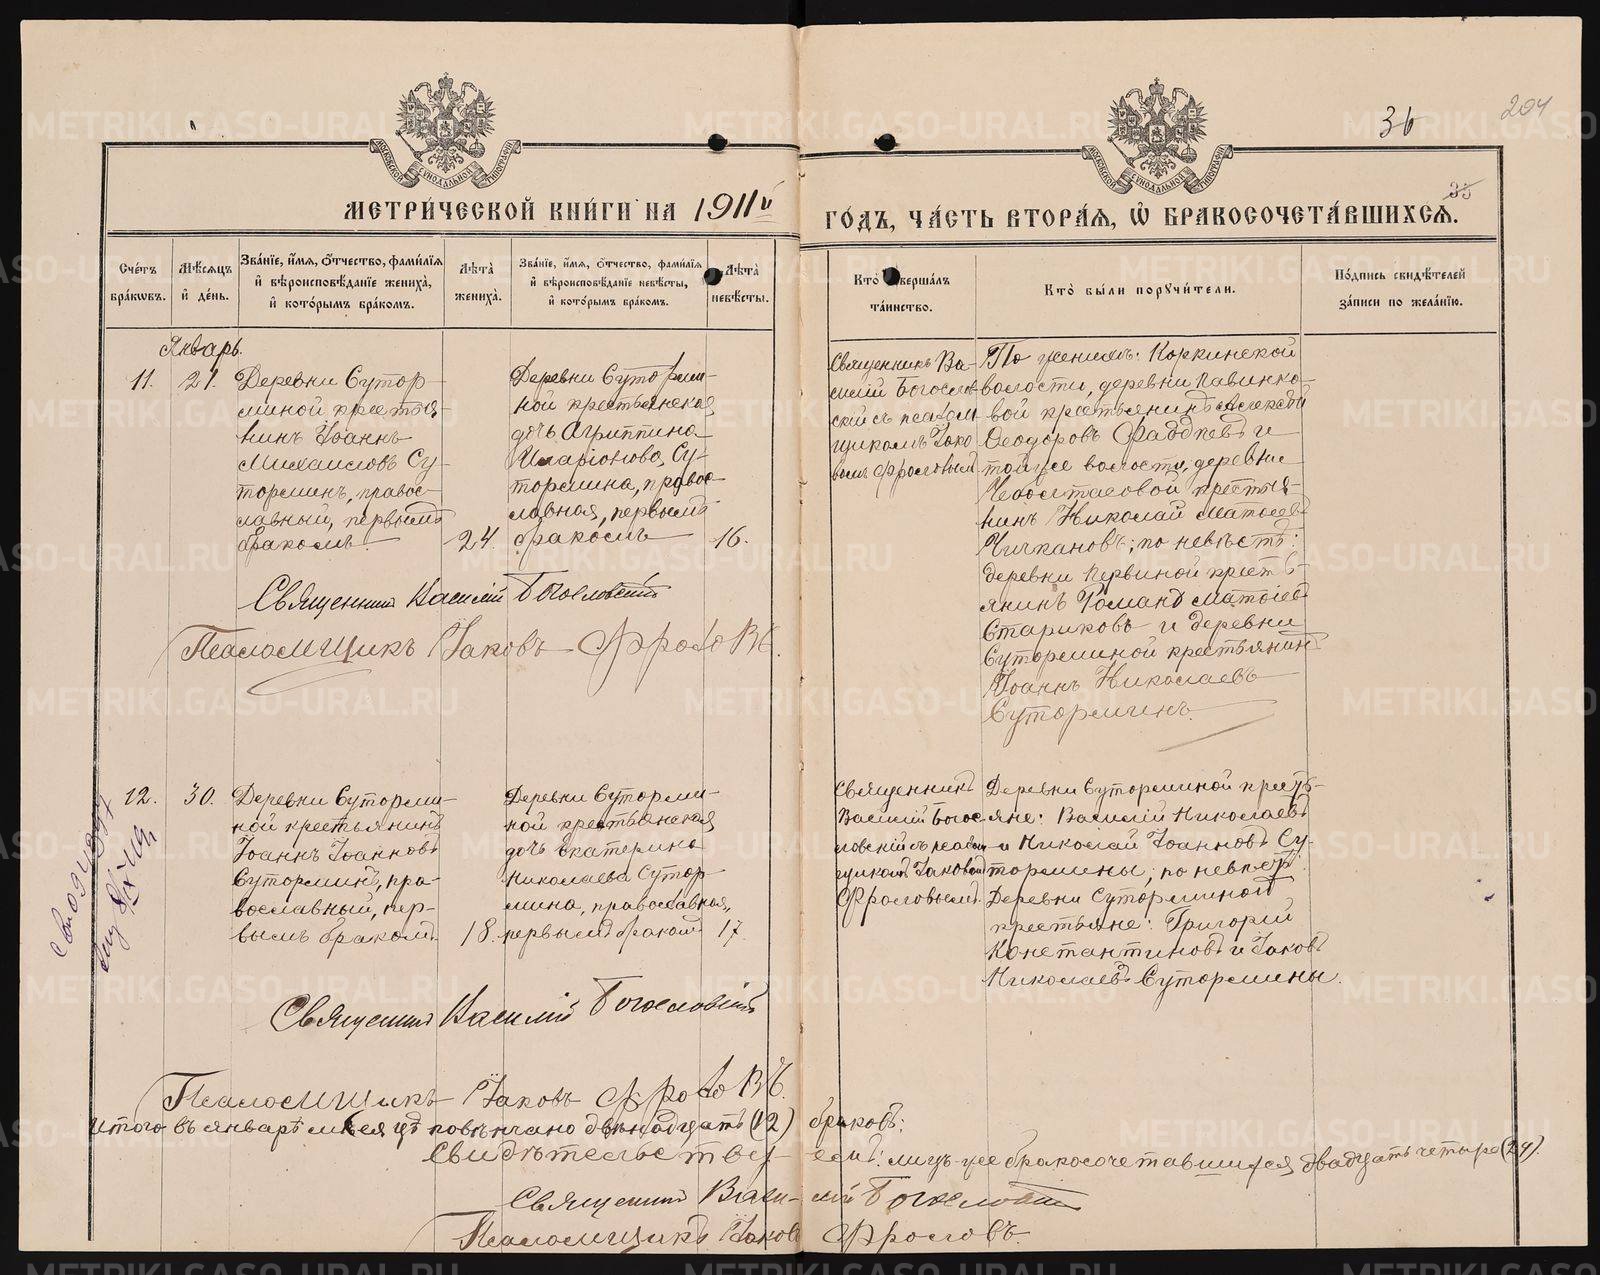 36
204
35
МЕТРИ́ЧЕСКОЙ КНИ́ГИ НА 1911й
ГО́ДЪ, ЧА́СТЬ ВТОРА́Я, Ѡ҆ БРАКОСОЧЕТА́ВШИХСЯ.
Сче́тъ бра́кѡвъ.
Мѣ́сяцъ и҆ де́нь.
Зва́нїе, и҆́мя, ѻ҆́тчество, фами́лїя
и҆ вѣроисповѣ́данїе жениха̀,
и҆ кото́рымъ бра́комъ.
Лѣ́та жениха̀.
Зва́нїе, и҆́мя, ѻ҆́тчество, фами́лїя
и҆ вѣроисповѣ́данїе невѣ́сты,
и҆ кото́рымъ бра́комъ.
Лѣ́та невѣ́сты.
Кто̀ соверша́лъ
та́инство.
Кто̀ бы́ли порꙋчи́тели.
По́дпись свидѣ́телей
за́писи по жела́нїю.
Январь.
11.
21.
Деревни Сутор-
миной крестья-
нинъ Іоаннъ
Михаиловъ Су-
торминъ, правос-
лавный, первымъ
бракомъ.
24.
Деревни Сутормин-
ной крестьянская
дочь Агриппина
Иларіонова, Су-
тормина, правос-
лавная, первымъ
бракомъ
16.
Священникъ Ва-
силій Богослов-
скій съ псалом-
щикомъ Іако-
вомъ Фроловымъ
По женихѣ: Коркинской
волости, деревни Павинко-
вой крестьянинъ Алексѣй
Ѳеодоровъ Фаддѣевъ и
той же волости, деревни
крестья-
нинъ Николай Матвѣевъ
Чичкановъ; по невѣстѣ:
деревни Первиной кресть-
янинъ Романъ Матвѣевъ
Стариковъ и деревни
Суторминой крестьянинъ
Іоаннъ Николаевъ
Суторминъ.
Священникъ Василій Богословскій
Псаломщикъ Іаковъ Фроловъ.
12.
30.
Деревни Сутормин-
ной крестьянинъ
Іоаннъ Іоанновъ
Суторминъ, пра-
вославный, пер-
вымъ бракомъ.
18.
Деревни Сутормин-
ной крестьянская
дочь Екатерина
Николаева Сутор-
мина, православная,
первымъ бракомъ
17.
Священникъ
Василій Богос-
ловскій съ псалом-
щикомъ Іаковомъ
Фроловымъ.
Деревни Суторминой кресть-
яне: Василій Николаевъ
и Николай Іоанновъ Су-
тормины; по невѣстѣ:
Деревни Суторминой
крестьяне: Григорій
Константиновъ и Іаковъ
Николаевъ Сутормины.
Священникъ Василій Богословскій
Псаломщикъ Іаковъ Фроловъ.
Итого въ январѣ мѣсяцѣ повѣнчано двѣнадцать (12) браковъ:
лицъ же бракосочетавшихся двадцать четыре (24).
Свидѣтельствуемъ:
Священникъ Василій Богословскій
Псаломщикъ Іаковъ Фроловъ.
METRIKI.GASO-URAL.RU